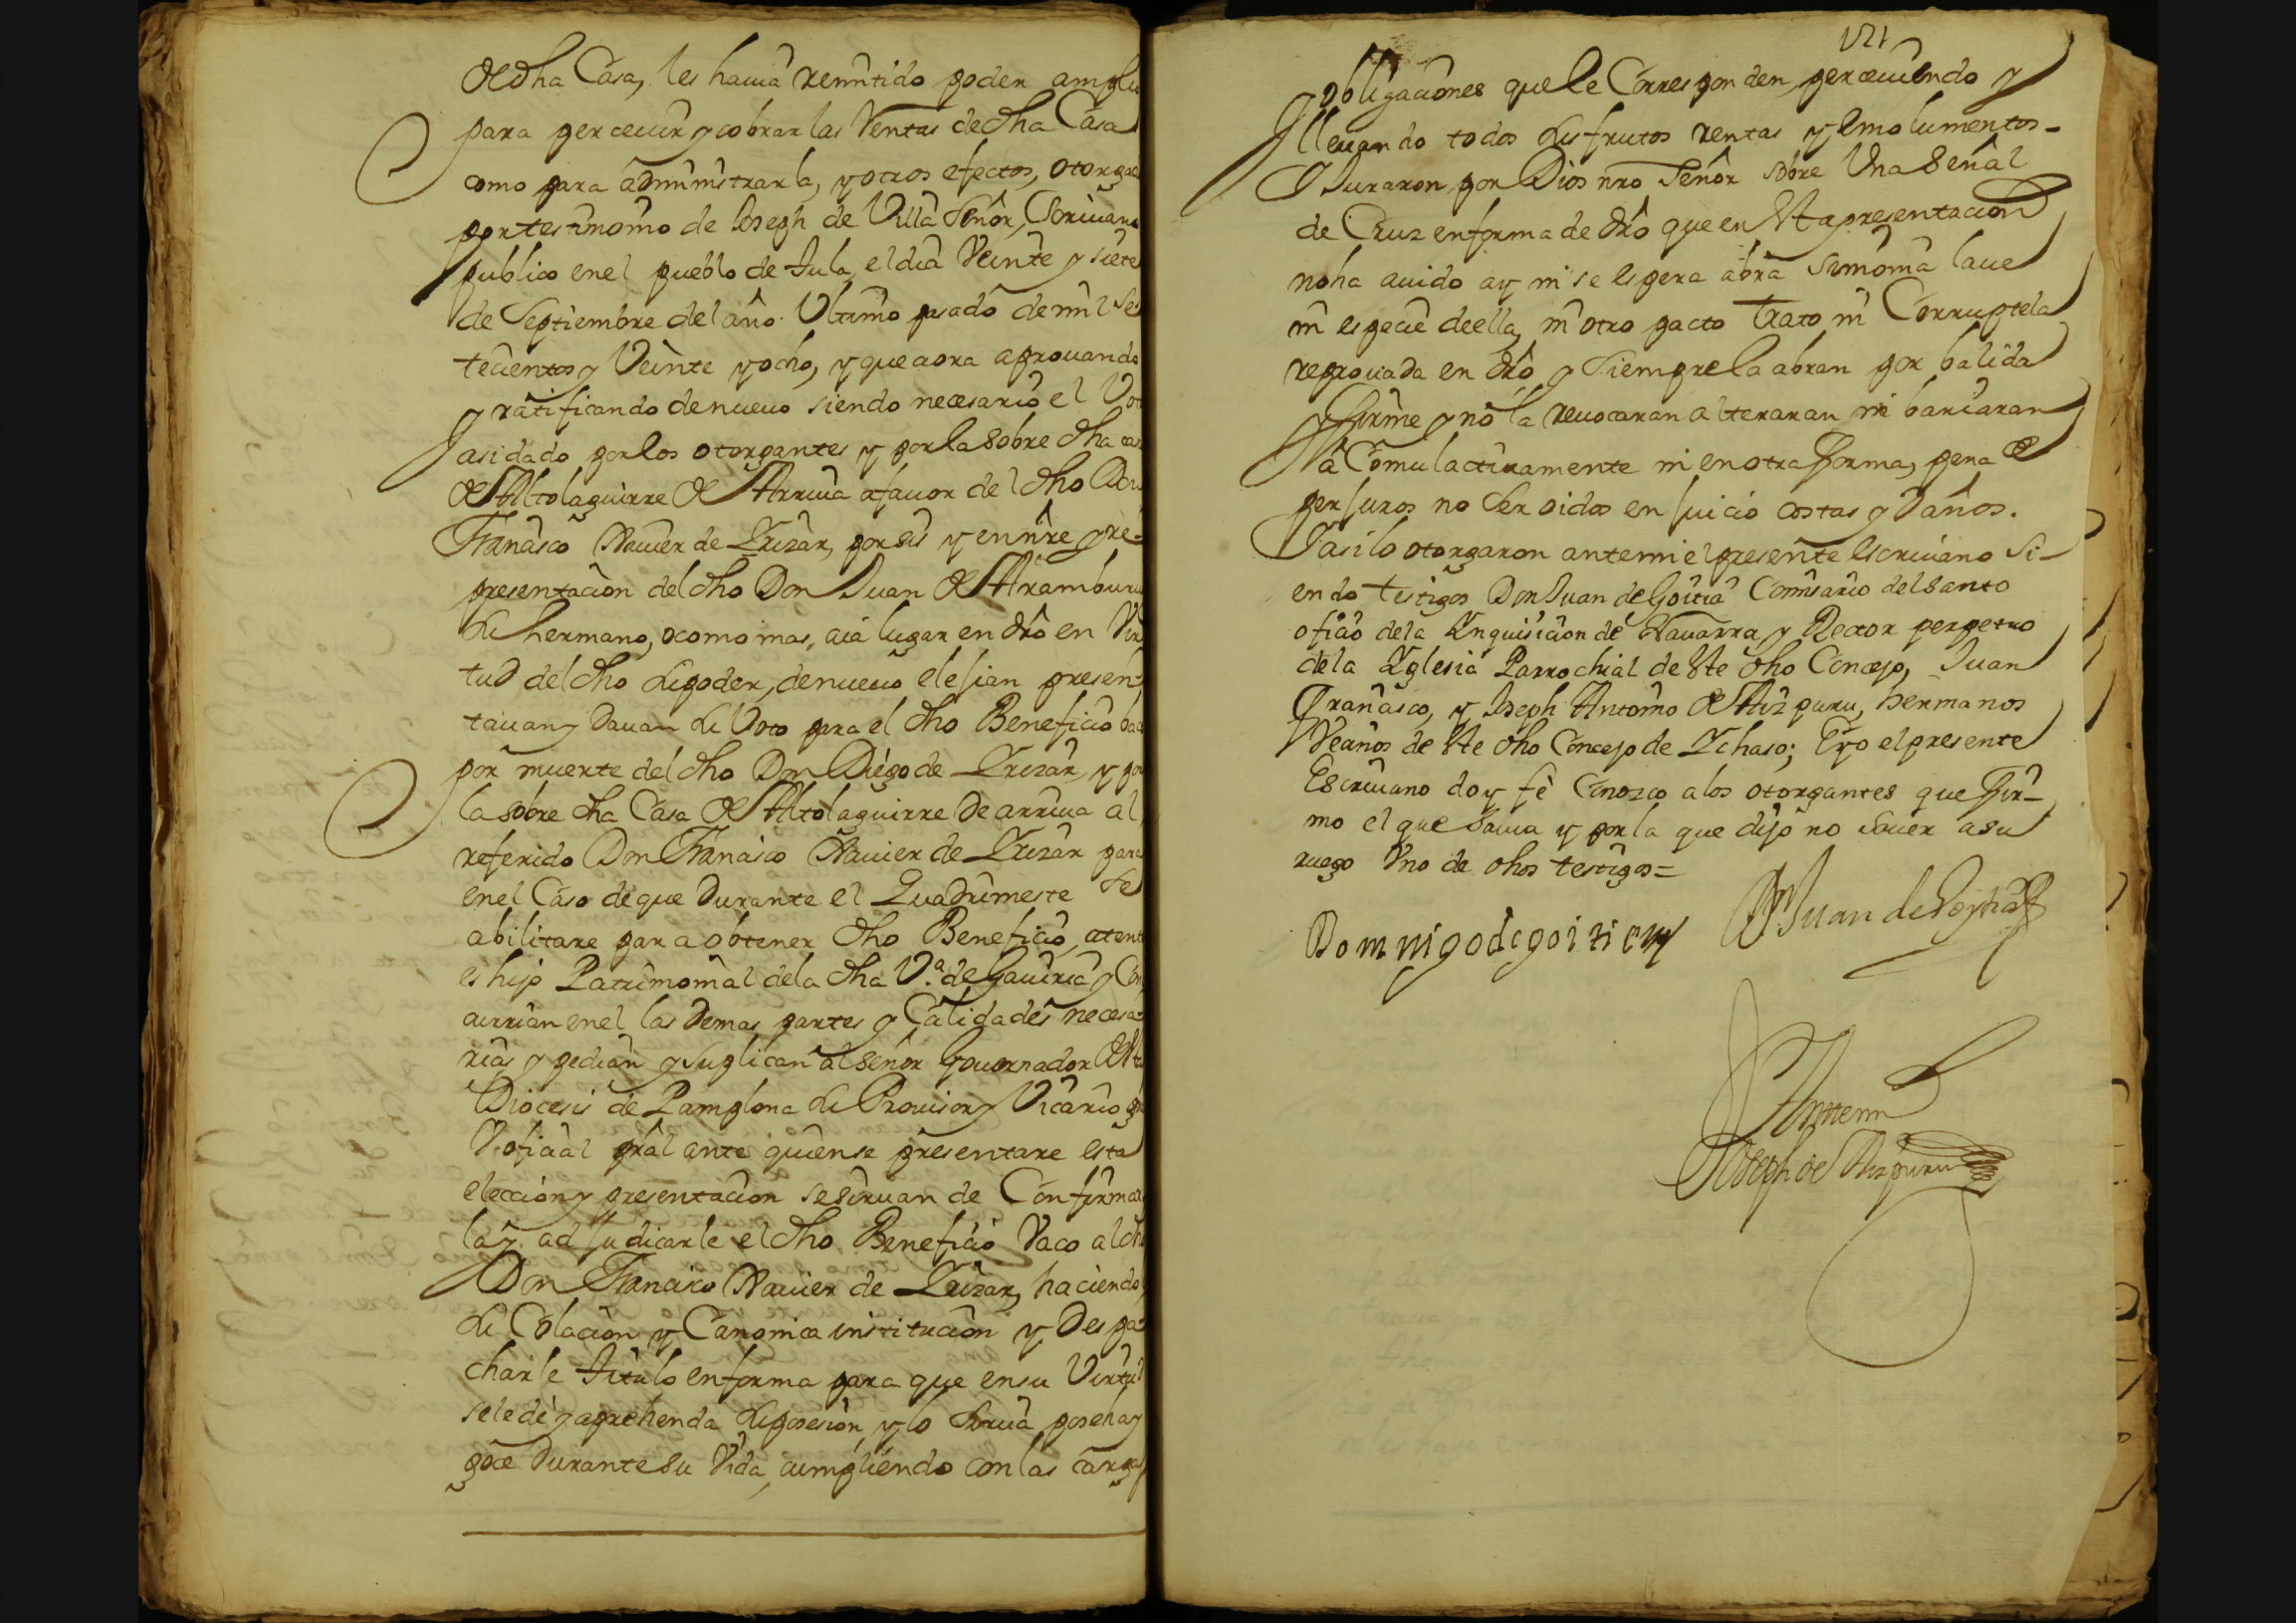 de dha Casa, les hauia remitido poder amplio
para perceuir y cobrar las Rentas de dha Casa
como para administrarla, y otros efectos, otorgado
por testimonio de Joseph de Villa Señor, Escriuano
publico en el pueblo de Tula, el dia Veinte y siete
de Septiembre del año Vltimo pasado de mil se
tecientos y Veinte y ocho, y que aora aprouando
y ratificando de nueuo siendo necesario el Voto
asi dado por los otorgantes y por la sobre dha casa
de Altolaguirre de Arriua a fauor del dho Don
Francisco Xauier de Yrizar, por si y en nre y re-
presentacion del dho Don Juan de Aramburu
su hermano, o como mas, aia lugar en dro en Vir
tud del dho su poder, de nueuo elejian presen-
tauan y dauan su Voto para el dho Beneficio baco
por muerte del dho Don Diego de Yrizar, y por
la sobre dha Casa de Altolaguirre de arriua al
referido Don Francisco Xauier de Yrizar para
en el Caso de que durante el Quadrimestre se
abilitare para obtener dho Beneficio, atento
es hijo Patrimonial de la dha Va. de Gauiria y con
currian en el las demas partes y Calidades necesa-
rias y pedian y suplican al señor Gouernador de
Diocesis de Pamplona su Prouisor y Vicario
V oficial gral ante quien se presentare esta
eleccion y presentacion se siruan de Confirmar
la y adjudicarle el dho Beneficio Vaco al dho
Don Francisco Xauier de Yrizar, haciendo
su Colacion y Canonica institucion y Despa-
charle titulo en forma para que en su Virtud
se le de y aprehenda su posesion, y lo Sirua posehay
goce durante su Vida, cumpliendo con las cargas
121
y obligaciones que le Corresponden, perceuiendo y
lleuando todos sus frutos rentas y emolumentos-
Y Juraron por Dios nro Señor sobre Vna Señal
de Cruz en forma de dro que en esta presentacion
no ha auido ay ni se espera abra Simonia laue
ni especie de ella, ni otro pacto trato ni Corruptela
reprouada en dro y siempre la abran por balida
y firme y no la reuocaran alteraran ni bariaran
a Comulactiuamente ni en otra forma, pena de
perjuros no ser oidos en juicio costas y daños.
Y asi lo otorgaron ante mi el presente escriuano si-
endo testigos Don Juan de Goitia Comisario del santo
oficio de la Ynquisicion de Nauarra y Rector perpetuo
de la Yglesia Parrochial de este dho Concejo, Juan
Francisco, y Joseph Antonio de Aizpuru, hermanos
Vecinos de este dho Concejo de Ychaso; E yo el presente
Escriuano doy fe Conozco a los otorgantes que fir-
mo el que sauia y por la que dijo no sauer a su
ruego Vno de dhos testigos=
Domingo de goitia
D Juan de Goytia
Ante mi
Joseph de Aizpuru